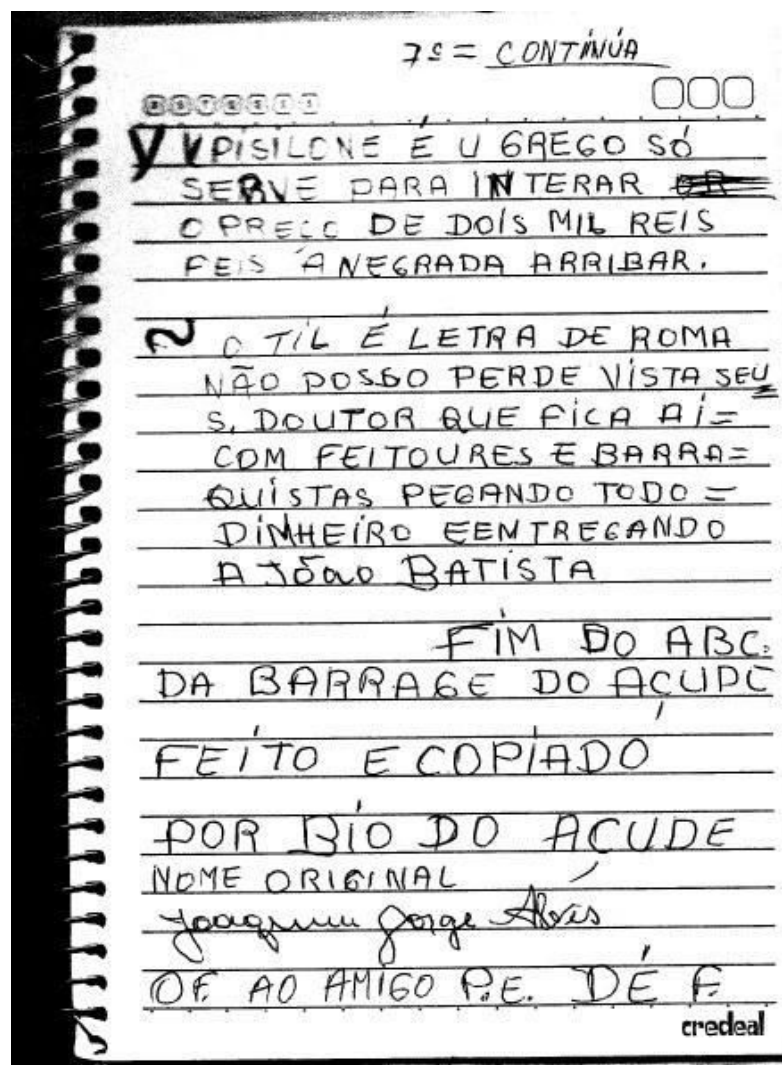 7º = CONTÍNÚA
Y YPISILONE É U GREGO SÓ
SERVE PARA INTERAR
O PREÇO DE DOIS MIL REIS
FEIS A NEGRADA ARRIBAR.
~ O TIL É LETRA DE ROMA
NÃO POSSO PERDE VISTA SEU
S, DOUTOR QUE FICA AÍ=
COM FEITOURES E BARRA=
QUISTAS PEGANDO TODO =
DINHEIRO EENTREGANDO
A JÕAO BATISTA
FIM DO ABC.
DA BARRAGE DO AÇUDE
FEITO E COPIADO
POR BIO DO AÇUDE
NOME ORIGINAL
Joaquim Jorge Alvis
OF. AO AMIGO P.E. DÉ F.
credeal